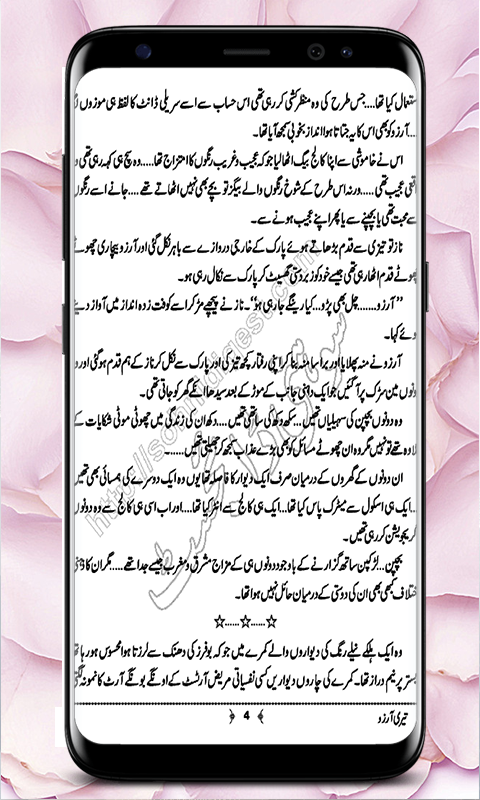 ستعمال کیا تھا....جس طرح کی وہ منظر کشی کر رہی تھی اس حساب سے اسے سریلی ڈانٹ کا لفظ ہی موزوں
...آرزو کو بھی اس کا یہ جتاتا ہوا انداز بخوبی سمجھ آیا تھا۔
اس نے خاموشی سے اپنا کالج بیگ اٹھا لیا جو کہ عجیب و غریب رنگوں کا امتزاج تھا.....وہ سچ ہی کہہ رہی تھی و
قعی عجیب تھی .....ورنہ اس طرح کے شوخ رنگوں والے بیگز تو بچے بھی نہیں اٹھاتے تھے ....جانے اسے رنگوں
سے محبت تھی یا بچپنے سے یا پھر اپنے عجیب ہونے سے۔
ناز تو تیزی سے قدم بڑھاتے ہوئے پارک کے خارجی دروازے سے باہر نکل گئی اور آرزو بیچاری چھوٹے
چھوٹے قدم اٹھا رہی تھی جیسے خود کو زبردستی گھسیٹ کر پارک سے نکال رہی ہو۔
"آرزو.......چل بھی پڑو...کیا رینگے جا رہی ہو"۔ ناز نے پیچھے مڑ کر اسے کوفت زدہ انداز میں آواز دیتے
ہوئے کہا۔
آرزو نے منہ پھلایا اور برا سا منہ بنا کر اپنی رفتار کچھ تیز کی اور پارک سے نکل کر ناز کے ہم قدم ہو گئی اور و
ونوں مین سڑک پر آ گئیں جو ایک دائیں جانب کے موڑ کے بعد سیدھا انکے گھر کو جاتی تھی۔
وہ دونوں بچپن کی سہیلیاں تھیں...سکھ دکھ کی ساتھی تھیں....دکھ ان کی زندگی میں چھوٹی موٹی شکایات کے
لاوہ تھے تو نہیں مگر وہ ان چھوٹے مسائل کو بھی بڑے عذاب سمجھ کر جھیلتی تھیں.......
ان دونوں کے گھروں کے درمیان صرف ایک دیوار کا فاصلہ تھا یوں وہ ایک دوسرے کی ہمسائی بھی تھیں
...ایک ہی اسکول سے میٹرک پاس کیا تھا...ایک ہی کالج سے انٹر کیا تھا....اور اب اسی ہی کالج سے وہ دونوں
گریجویشن کر رہی تھیں۔
بچپن..لڑکپن ساتھ گزارنے کے باوجود دونوں ہی کے مزاج مشرق و مغرب جیسے جدا تھے.....مگر ان کا
ختلاف کبھی بھی ان کی دوستی کے درمیان حائل نہیں ہوا تھا۔
☆......☆......☆
وہ ایک ہلکے نیلے رنگ کی دیواروں والے کمرے میں جو کہ بوفرز کی دھنک سے لرزتا ہوا محسوس ہو رہا تھا
بستر پر نیم دراز تھا۔ کمرے کی چاروں دیواریں کسی نفسیاتی مریض آرٹسٹ کے اونگے بونگے آرٹ کا نمونہ لگتی
تیری آرزو ﴿ 4 ﴾
http://sohnidigest.com
سوہنی ڈائجسٹ